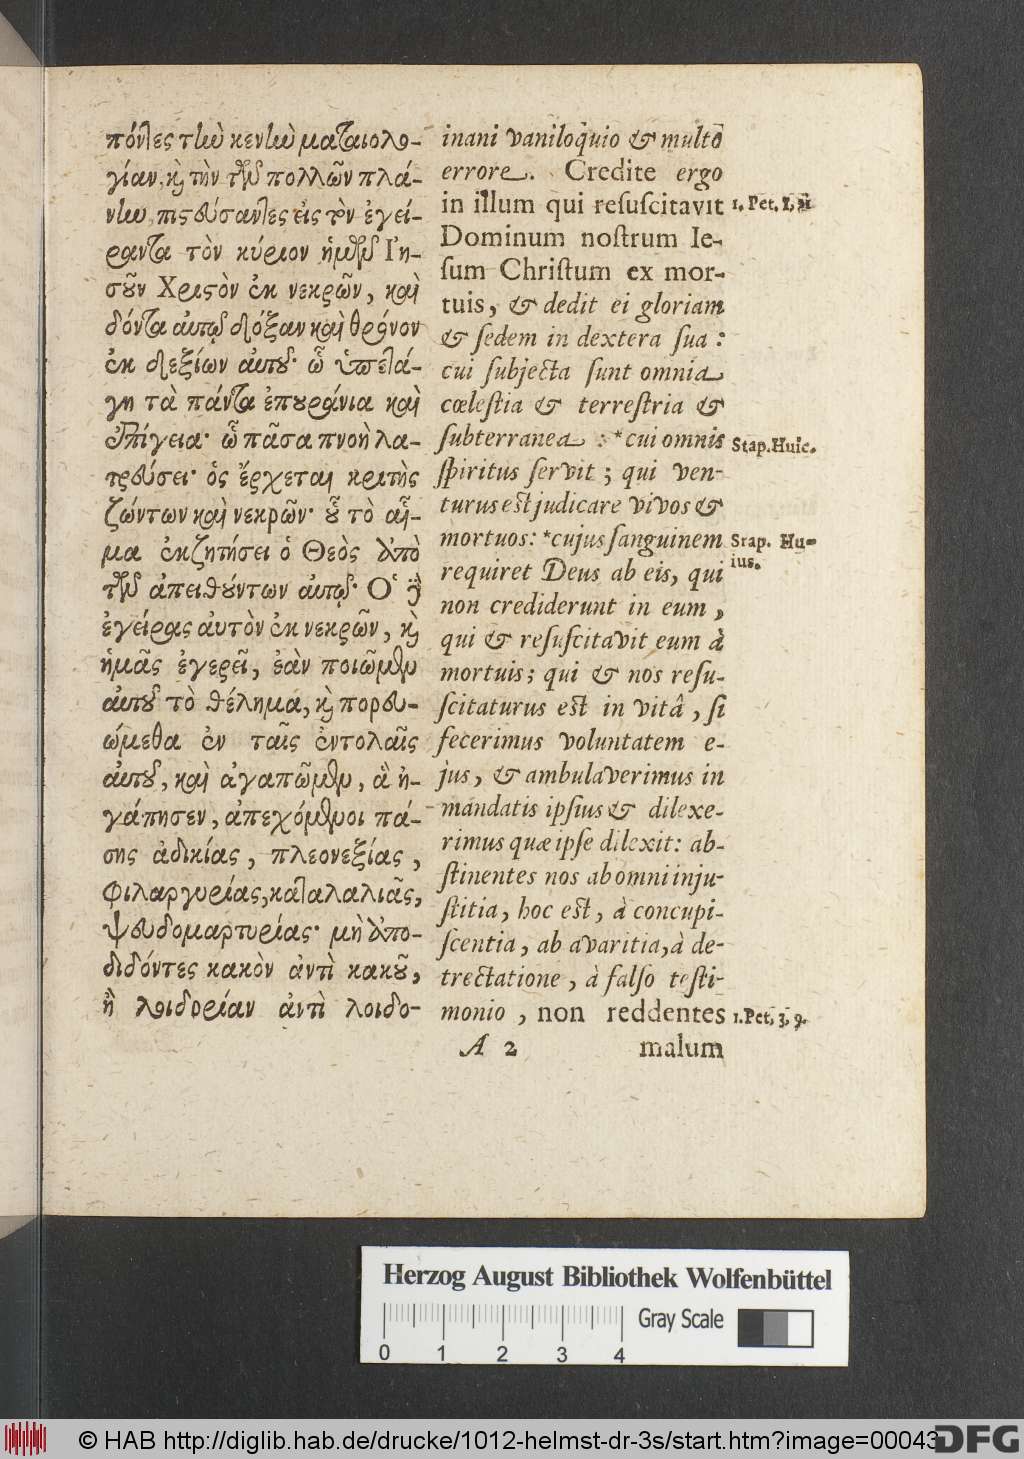 πόντες τὴν κενὴν ματαιολο-
γίαν, καὶ τὴν τῶν πολλῶν πλά-
νην, πιστεύσαντες εἰς τὸν ἐγεί-
ραντα τὸν κύριον ἡμῶν Ἰη-
σοῦν Χριστὸν ἐκ νεκρῶν, καὶ
δόντα αὐτῷ δόξαν καὶ θρόνον
ἐκ δεξιῶν αὐτοῦ· ᾧ ὑπετά-
γη τὰ πάντα ἐπουράνια καὶ
ἐπίγεια· ᾧ πᾶσα πνοὴ λα-
τρεύσει· ὃς ἔρχεται κριτὴς
ζώντων καὶ νεκρῶν· οὗ τὸ αἷ-
μα ἐκζητήσει ὁ Θεὸς ἀπὸ
τῶν ἀπειθούντων αὐτῷ· Ὁ δὲ
ἐγείρας αὐτὸν ἐκ νεκρῶν, καὶ
ἡμᾶς ἐγερεῖ, ἐὰν ποιῶμεν
αὐτοῦ τὸ θέλημα, καὶ πορευ-
ώμεθα ἐν ταῖς ἐντολαῖς
αὐτοῦ, καὶ ἀγαπῶμεν, ἃ ἠ-
γάπησεν, ἀπεχόμενοι πά-
σης ἀδικίας, πλεονεξίας,
φιλαργυρίας, καταλαλιᾶς,
ψευδομαρτυρίας· μὴ ἀπο-
διδόντες κακὸν ἀντὶ κακοῦ,
ἢ λοιδορίαν ἀντὶ λοιδο-
inani vaniloquio & multo
errore. Credite ergo
in illum qui resuscitavit
Dominum nostrum Ie-
sum Christum ex mor-
tuis, & dedit ei gloriam
& sedem in dextera sua:
cui subjecta sunt omnia
cœlestia & terrestria &
subterranea: *cui omnis
spiritus servit; qui ven-
turus est judicare vivos &
mortuos: *cujus sanguinem
requiret Deus ab eis, qui
non crediderunt in eum,
qui & resuscitavit eum à
mortuis; qui & nos resu-
scitaturus est in vitâ, si
fecerimus voluntatem e-
jus, & ambulaverimus in
mandatis ipsius & dilexe-
rimus quæ ipse dilexit: ab-
stinentes nos ab omni inju-
stitia, hoc est, à concupi-
scentia, ab avaritia, à de-
trectatione, à falso testi-
monio, non reddentes
A 2 malum
1. Pet. 1, 21
Stap. Huic.
Srap. Hu-
ius.
1. Pet. 3, 9.
Herzog August Bibliothek Wolfenbüttel
Gray Scale
0 1 2 3 4
© HAB http://diglib.hab.de/drucke/1012-helmst-dr-3s/start.htm?image=00043
DFG